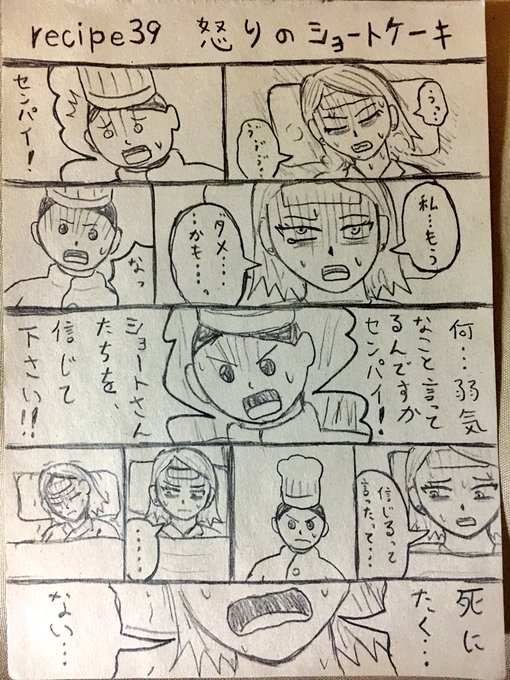 recipe39 怒りのショートケーキ
うっ…
センパイ!
私…もう
ダメ……
…かも…
なっ
何…弱気
なこと言って
るんですか
センパイ!
ショートさん
たちを、
信じて
下さい!!
信じるって
言ったって…
……
死に
たく…
ない…